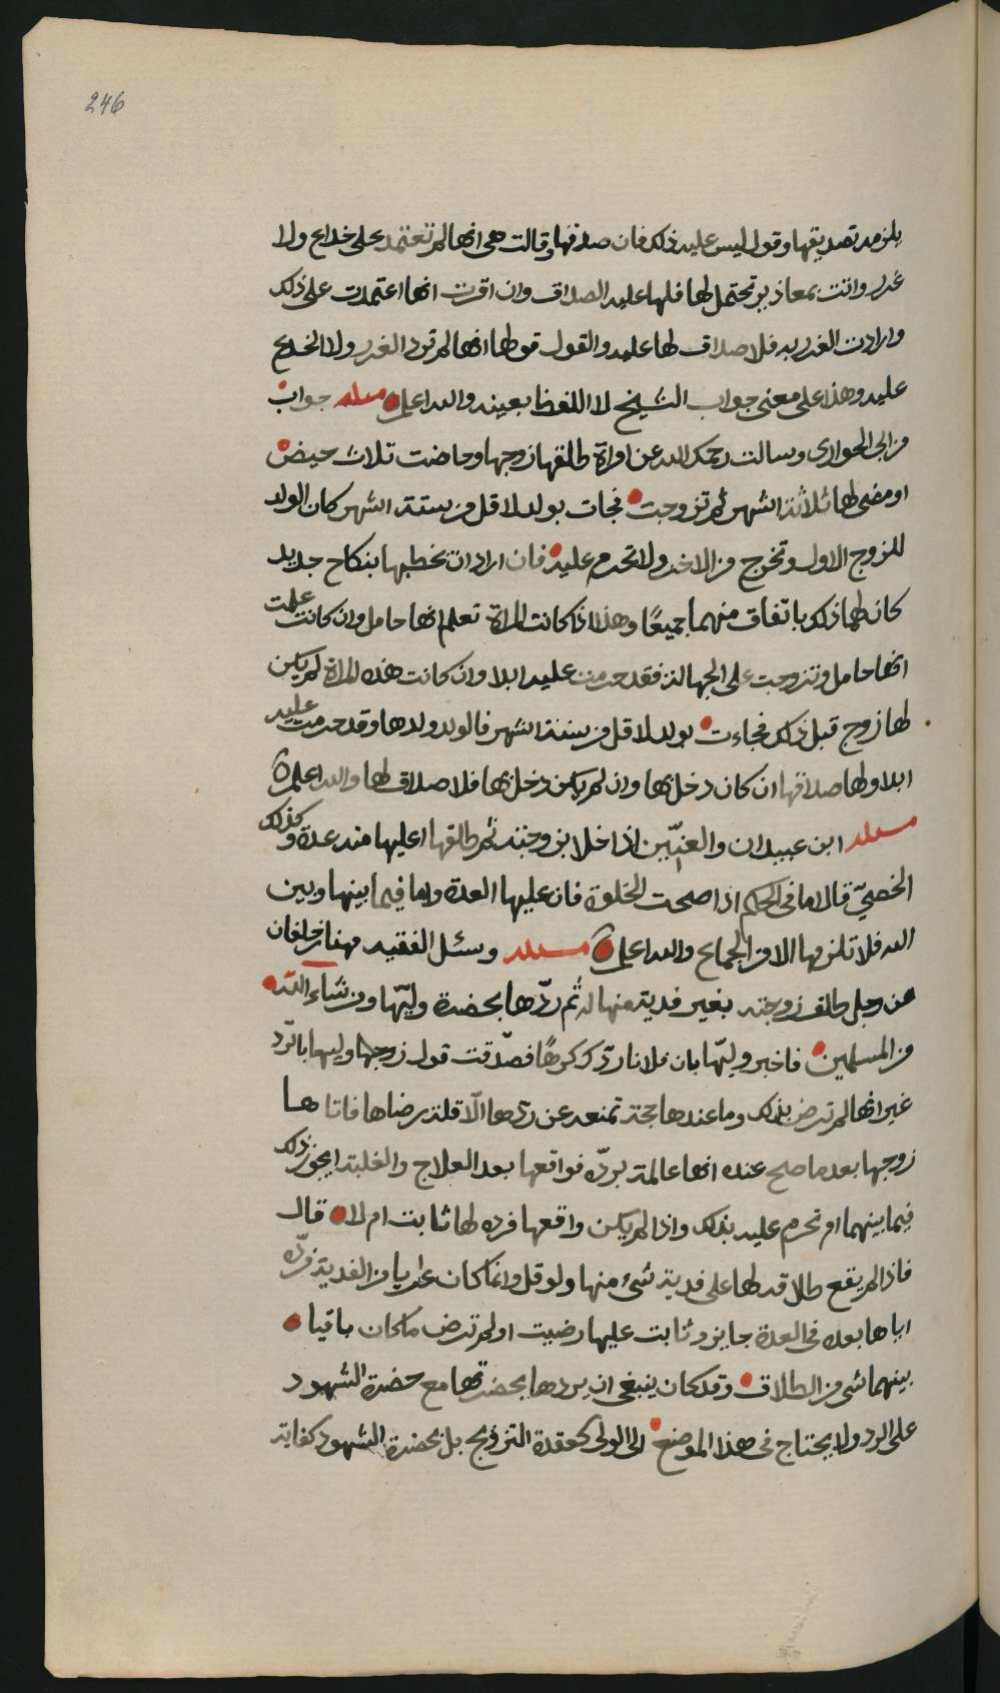 246
يلزمه تصديقها وقول ليس عليه ذلك فان صدقها وقالت هي انها لم تعتمد على خداع ولا
غدر واتت بمعاذير تحتمل لها فلها عليه الصداق وان اقرت انها اعتمدت على ذلك
وارادت الغدر به فلا صداق لها عليه والقول قولها انها لم ترد الغدر ولا الخدع
عليه وهذا على معنى جواب الشيخ لا اللفظ بعينه والله اعلم مسئلة جواب
من ابى الحوارى وسالت رحمك الله عن امراة طلقها زوجها وحاضت ثلاث حيض
او مضى لها ثلاثة اشهر ثم تزوجت فجات بولد لاقل من ستة اشهر كان الولد
للزوج الاول وتخرج من الاخر ولا تحرم عليه فان اراد ان يخطبها بنكاح جديد
كان لهما ذلك باتفاق منهما جميعًا وهذا اذا كانت المراة تعلم انها حامل وان كانت علمت
انها حامل وتزوجت على الجهالة فقد حرمت عليه ابدا وان كانت هذه المراة لم يكن
لها زوج قبل ذلك فجاءت بولد لاقل من ستة اشهر فالولد ولدها وقد حرمت عليه
ابدا ولها صداقها ان كان دخل بها وان لم يكن دخل بها فلا صداق لها والله اعلم
مسئلة ابن عبيدان والعنّيين اذا خلا بزوجته ثم طلقها اعليها منه عدة وكذلك
الخصيّ قال اما فى الحكم اذا صحت الخلوة فان عليها العدة واما فيما بينها وبين
الله فلا تلزمها الا من الجماع والله اعلم مسئلة وسئل الفقيه مهنا بن خلفان
عن رجل طلق زوجته بغير فدية منها له ثم ردّها بحضرة وليّها ومن شاء الله
من المسلمين فاخبر وليّها بان فلانا ردّك كرهًا فصدّقت قول زوجها وليها بالرّد
غير انها لم ترض بذلك وما عندها حجة تمنعه عن ردّها الّا قلة رضاها فاتاها
زوجها بعد ما صح عنده انها عالمة بردّه فواقعها بعد العلاج والغلبة ايجوز ذلك
فيما بينهما ام تحرم عليه بذلك واذا لم يكن واقعها فرده لها ثابت ام لا قال
فاذا لم يقع طلاقه لها على فدية شئ منها ولو قل وانما كان عاريا من الفدية فردّه
اياها بعده فى العدة جايز وثابت عليها رضيت او لم ترض ما كان باقيا
بينهما شى من الطلاق وقد كان ينبغى ان يردها بحضرتها مع حضرة الشهود
على الرد ولا يحتاج فى هذا الموضع الى الولى كعقدة التزويج بل بحضرة الشهود كفاية